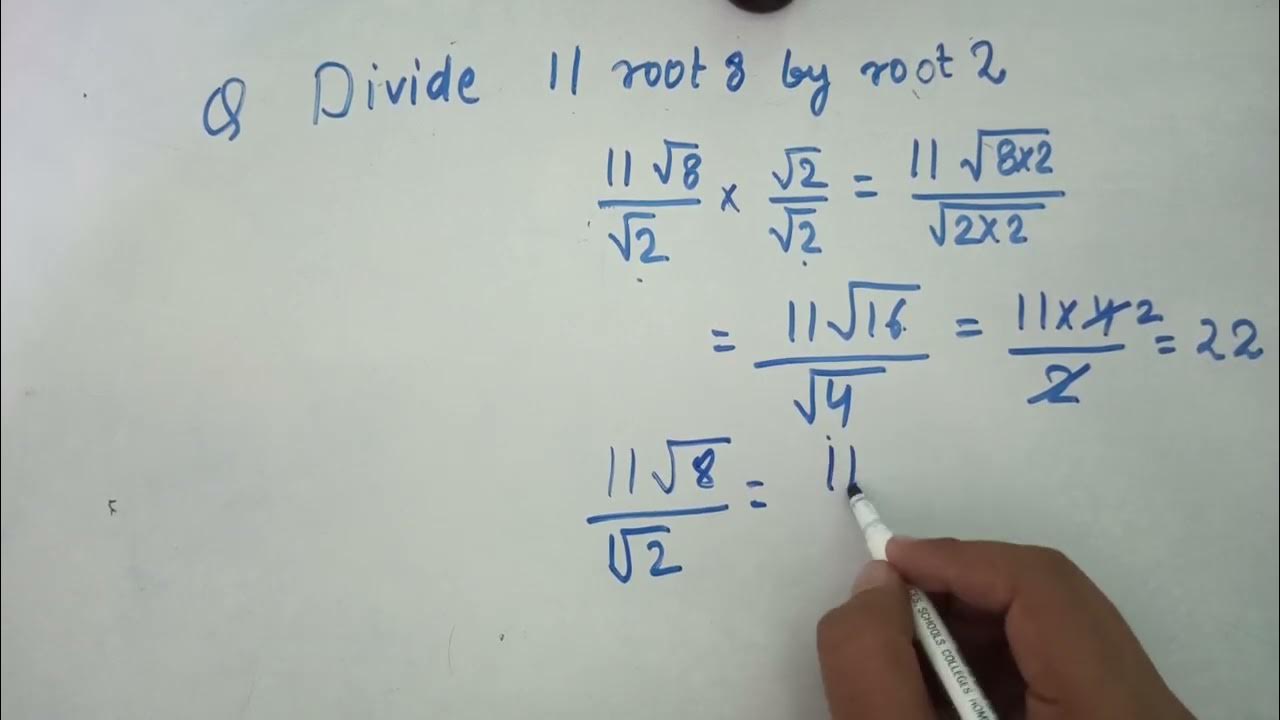 Q Divide 11 root 8 by root 2
11√8/√2 × √2/√2 = 11√8×2/√2×2
= 11√16/√4 = 11×4 2/2 = 22
11√8/√2 = 11
SCHOOLS COLLEGES